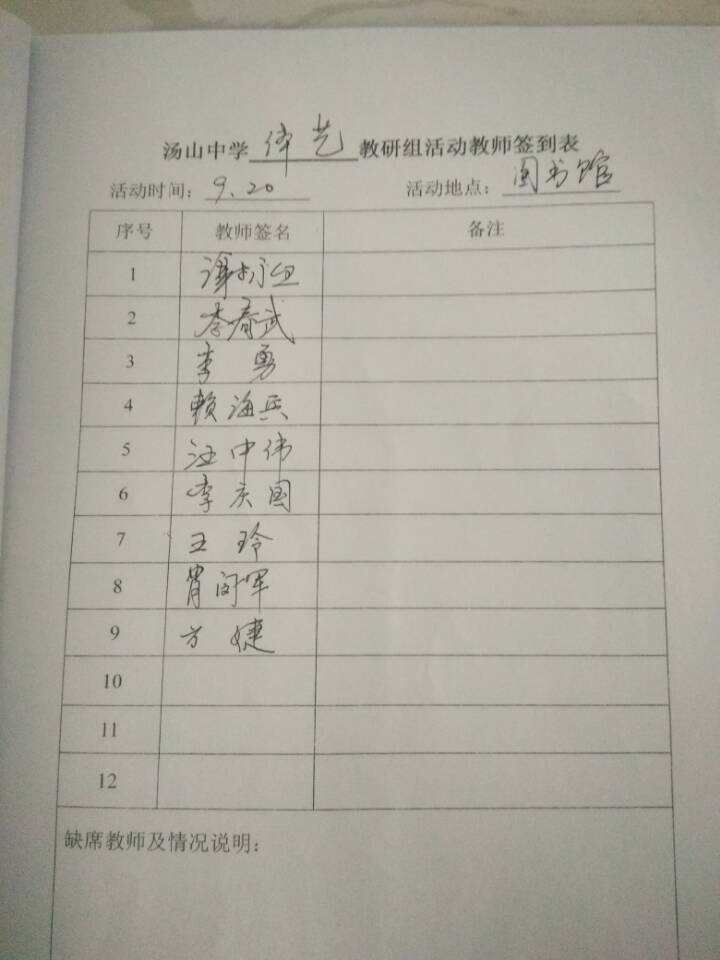 汤山中学 体艺 教研组活动教师签到表
活动时间：9.20 活动地点：图书馆
序号 教师签名 备注
1
2 李春武
3 李勇
4 赖海兵
5 汪中伟
6 李庆国
7 王玲
8
9 方婕
10
11
12
缺席教师及情况说明：